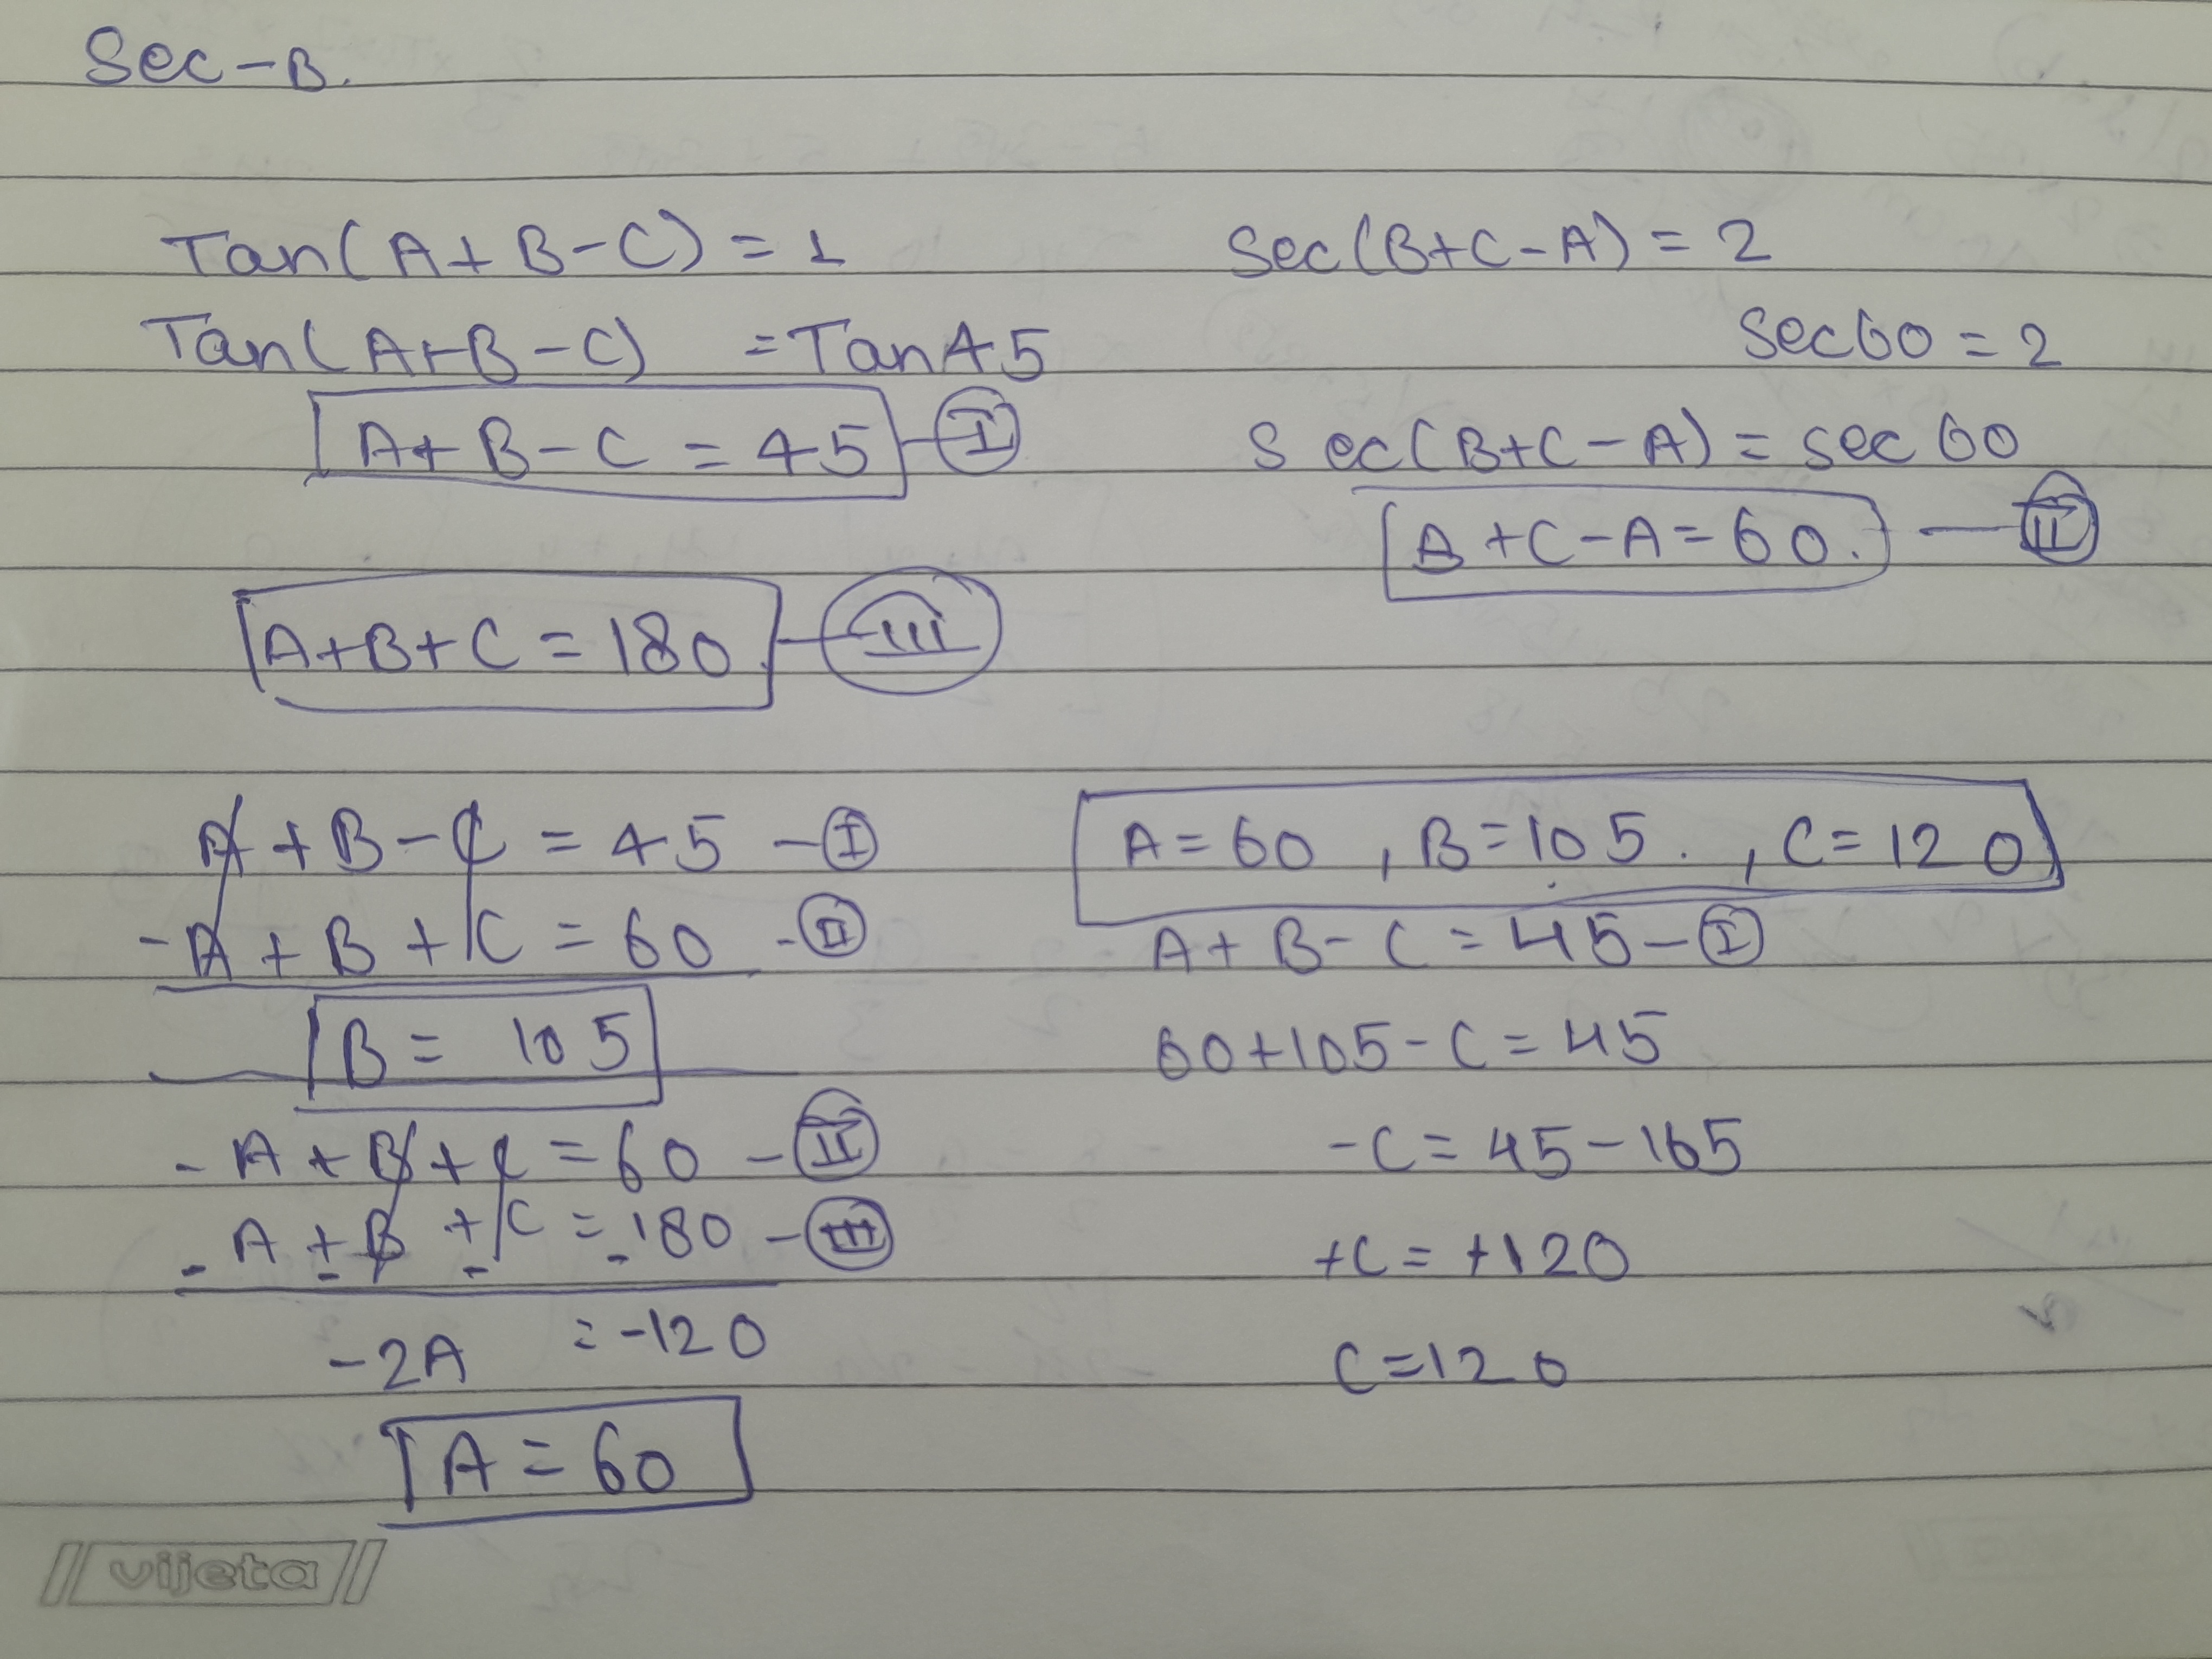 Sec-B.
Tan(A+B-C) = 1
Tan(A+B-C) = Tan45
A+B-C = 45 - I
Sec(B+C-A) = 2
Sec60 = 2
Sec(B+C-A) = sec 60
B+C-A=60. - II
A+B+C = 180. - III
A + B - C = 45 - I
-A + B + C = 60 - II
B = 105
- A + B + C = 60 - II
A + B + C = 180 - III
- - - -
-2A = -120
A = 60
A = 60 , B = 105. , C = 120
A + B - C = 45 - I
60+105-C = 45
-C = 45-165
+C = +120
C = 120
vijeta